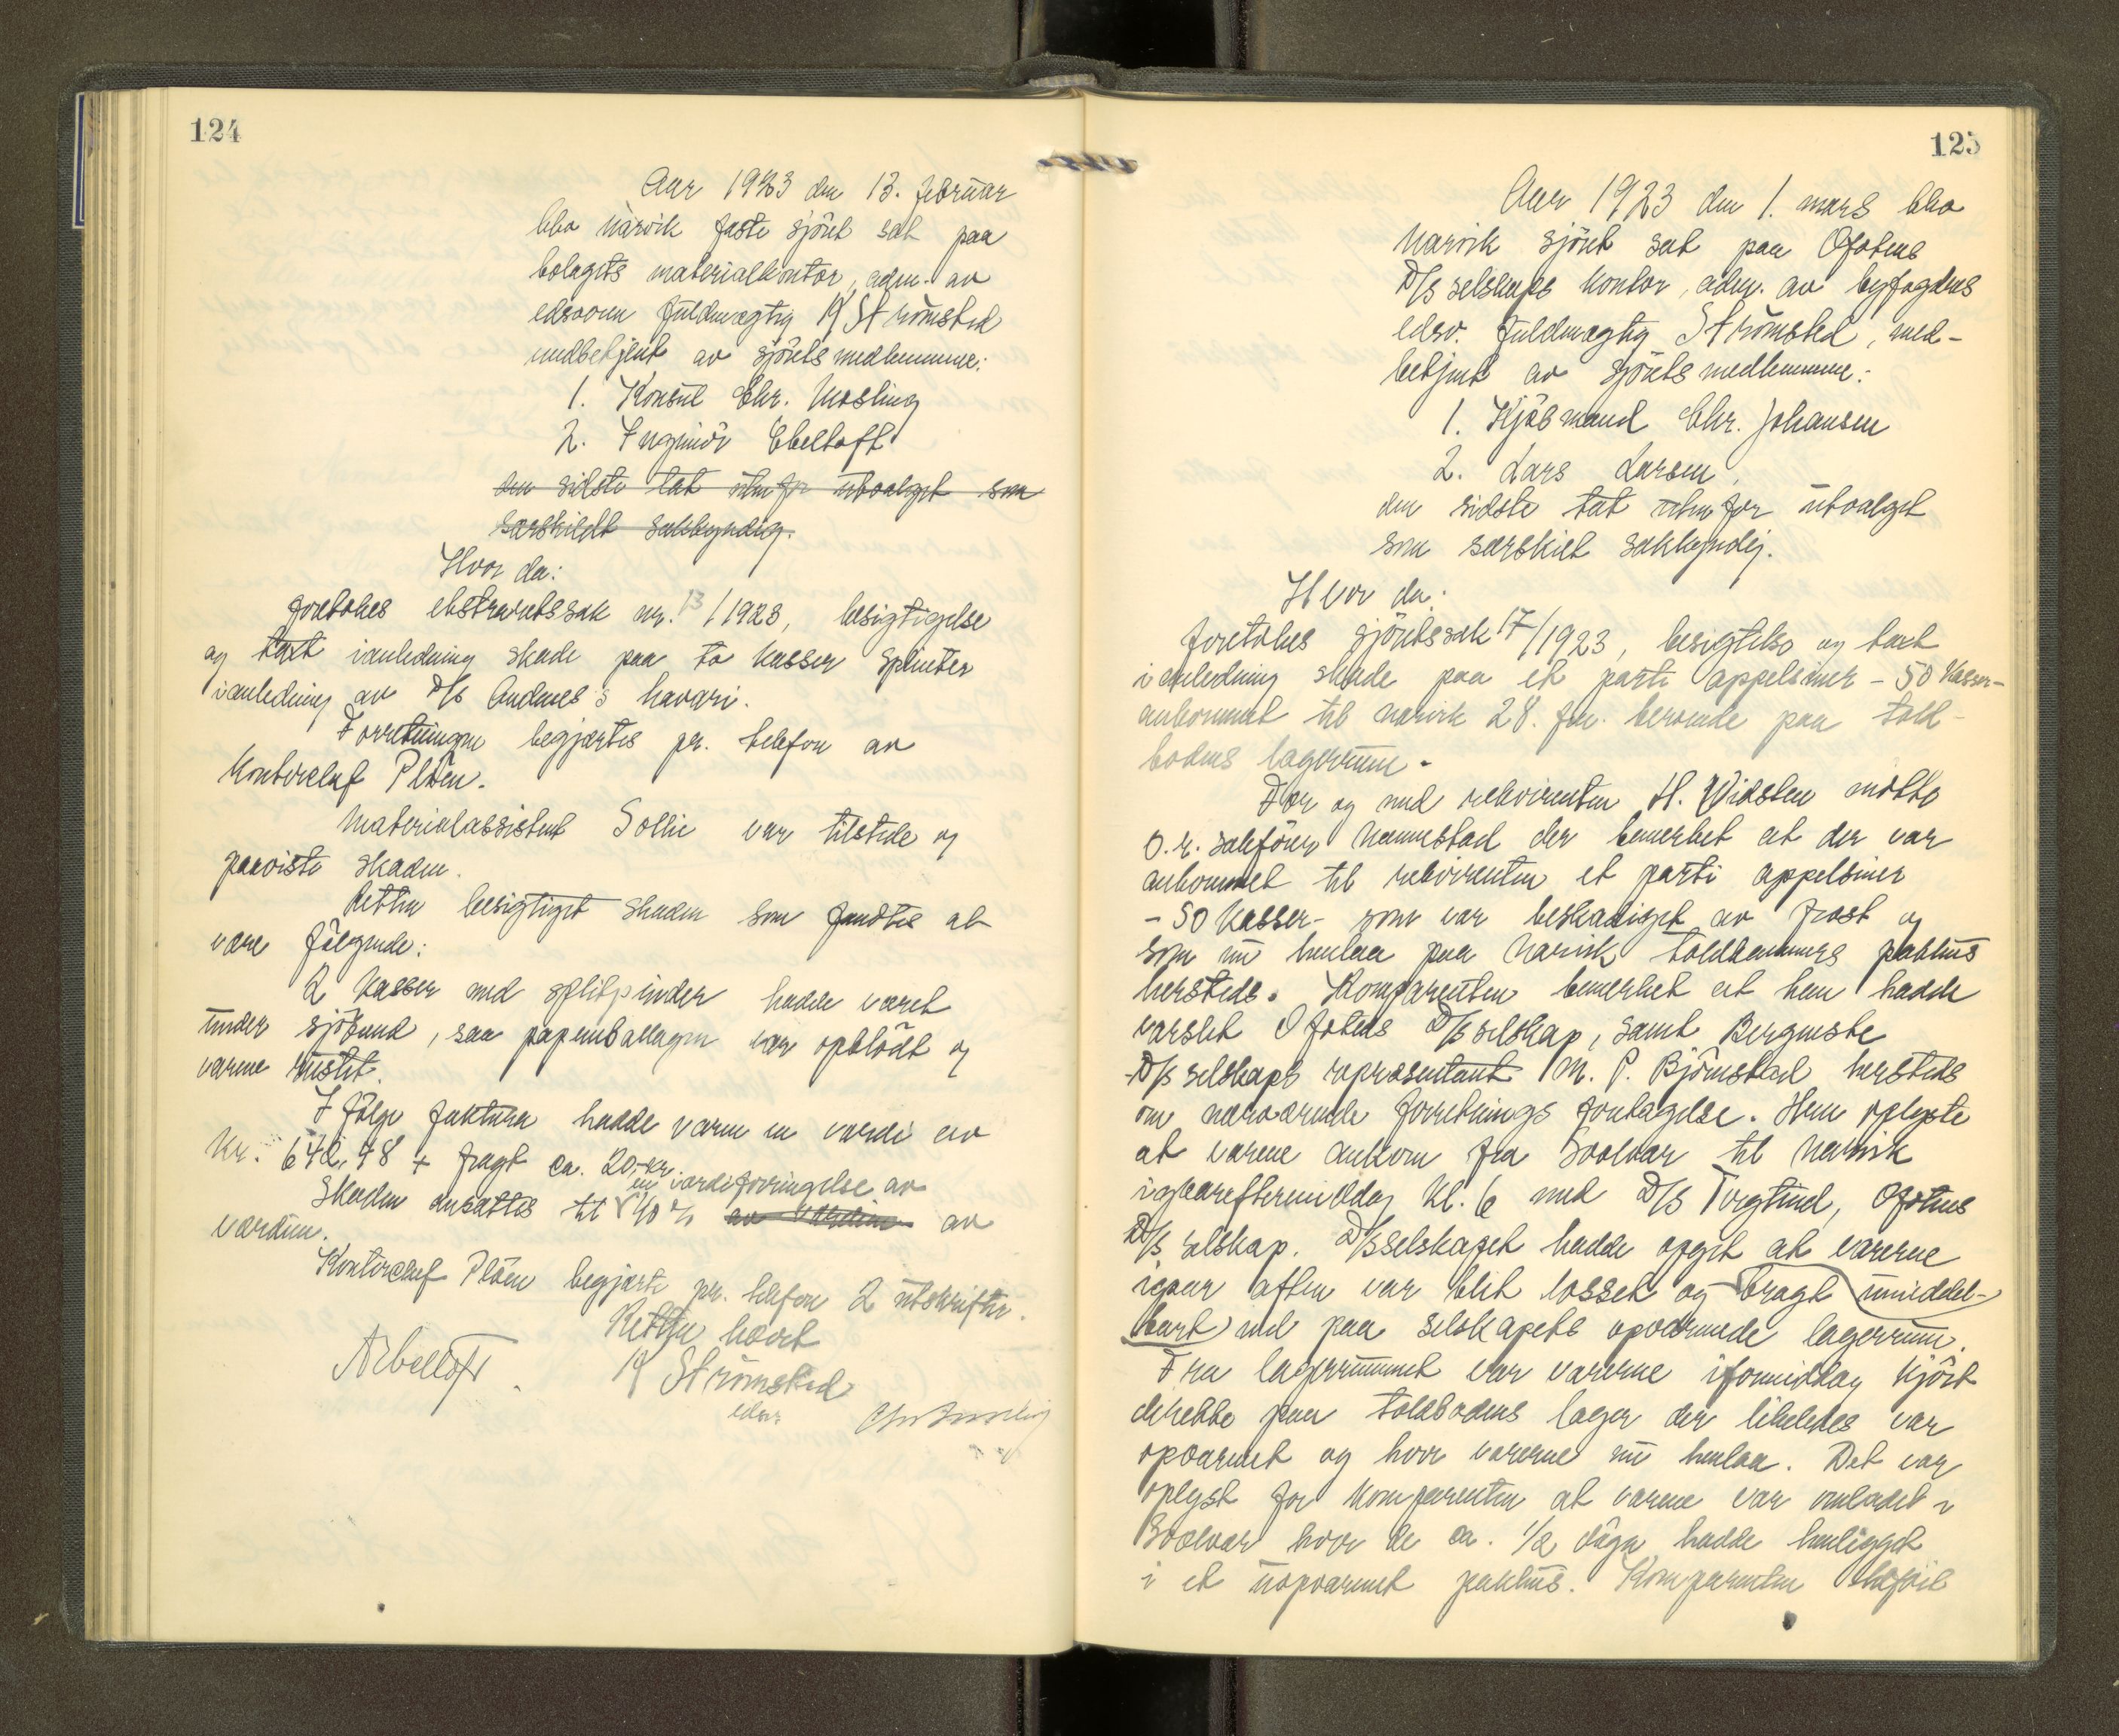 124
Aar 1923 den 13. februar
blev Narvik faste sjöret sat paa
bolagets materialkontor, adm. av
edsvoren fuldmægtig K Strömsted
medbetjent av sjöretsmedlemmene:
1. Konsul Chr. Mosling
2. Ingeniör Ebeltoft
den sidste tat utenfor utvalget som
særskildt sakkyndig.
Hvor da:
foretokes ekstraretssak nr. 13/1923, besigtigelse
og takst i anledning skade paa to kasser splinter
i anledning av D/S Andnes's havari.
Forretningen begjærtes pr. telefon av
kontorchef Pløen.
Materialassistent Sollie var tilstede og
paaviste skaden.
Retten besigtiget skaden som fandtes at
være følgende:
2 kasser med splitpinder hadde været
under sjövand, saa papemballagen var opblödt og
varene rustet.
Ifölge faktura hadde varen en værdi av
kr. 642,48 + fragt ca. 20,- kr.
Skaden ansattes til en værdiforringelse av
40 % av værdien av
værdien.
Kontorchef Pløen begjærte pr. telefon 2 utskrifter.
Retten hævet
K Strömsted
edsv.
AEbeltoft.
125
Aar 1923 den 1. mars blev
Narvik sjöret sat paa Ofotens
D/S selskaps kontor, adm. av byfogdens
edsv. fuldmægtig Strömsted, med-
betjent av sjöretsmedlemmene:
1. Kjöbmand Chr. Johansen
2. Lars Larsen,
den sidste tat utenfor utvalget
som særskilt sakkyndig.
Hvor da:
foretokes sjöretssak 17/1923, besigtelse og takst
i anledning skade paa et parti appelsiner - 50 kasser -
ankommet til Narvik 28. fm. beroende paa told-
bodens lagerrum.
For og med rekvirenten H. Widsten mötte
o.r. sakförer Hannestad der bemerket at der var
ankommet til rekvirenten et parti appelsiner
- 50 kasser - som var beskadiget av frost og
som nu henlaa paa Narvik toldkammers pakhus
hersteds. Komparenten bemerket at han hadde
varslet Ofotens D/S selskap, samt Bergenske
D/S selskaps repræsentant M. P. Björnstad hersteds
om nærværende forretnings foretagelse. Han oplyste
at varene ankom fra Svolvær til Narvik
igaareftermiddag kl. 6 med D/S Torgtind, Ofotens
D/S selskap. D/S selskapet hadde opgit at varerne
igaar aften var blit losset og bragt umiddel-
bart ind paa selskapets opvarmede lagerrum.
Fra lagerrummet var varerne iformiddag kjört
direkte paa toldbodens lager der likeledes var
opvarmet og hvor varerne nu henlaa. Det var
oplyst for komparenten at varene var omladet i
Svolvær hvor de ca. 1/2 dögn hadde henligget
i et uopvarmet pakhus. Komparenten